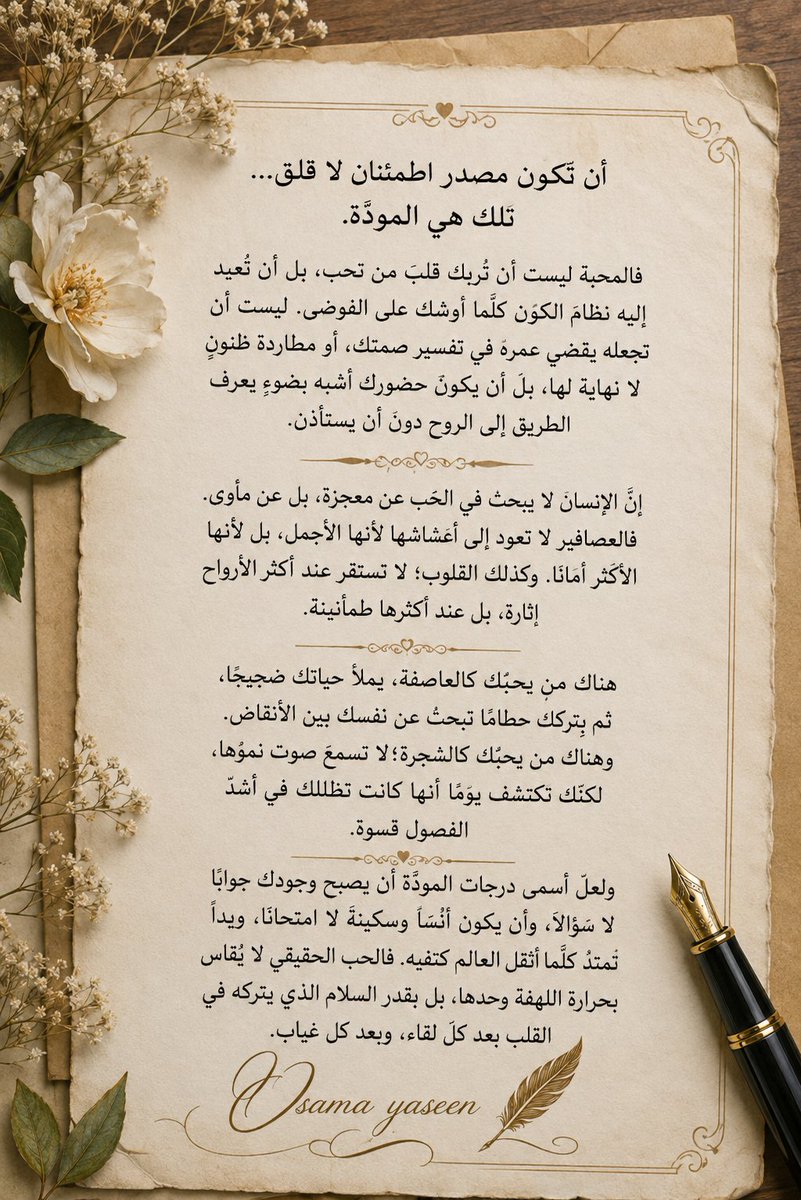 أن تَكون مصدر اطمئنان لا قلق...
تَلك هي المودَّة.
فالمحبة ليست أن تُربك قلبَ من تحب، بل أن تُعيد
إليه نظامَ الكوَن كلَّما أوشك على الفوضى. ليست أن
تجعله يقضي عمرهَ في تفسير صمتك، أو مطاردة ظنونٍ
لا نهاية لها، بلَ أن يكونَ حضورك أشبه بضوءٍ يعرف
الطريق إلى الروح دونَ أن يستأذن.
إنَّ الإنسانَ لا يبحث في الحَب عن معجزة، بل عن مأوى.
فالعصافير لا تعود إلى أعَشاشها لأنها الأجمل، بل لأنها
الأكَثر أمَانَا. وكذلك القلوب؛ لا تستقر عند أكثر الأرواح
إثارة، بل عند أكثرها طمأنينة.
هناك منِ يحبّك كالعاصفة، يملأ حياتك ضجيجًا،
ثم يِتركك حطامًا تبحثُ عن نفسك بين الأنقاض.
وهناك من يحبّك كالشجرة؛لا تسمعَ صوت نموُها،
لكنّك تكتشف يوَمًا أنها كانت تظللك في أشدّ
الفصول قسوة.
ولعلّ أسمى درجات المودَّة أن يصبح وجودك جوابًا
لا سَؤالاَ، وأن يكون أنُسَاً وسكينةَ لا امتحانَا، ويداً
تُمتدُ كلَّما أثقل العالم كتفيه. فالحب الحقيقي لا يُقاس
بحرارة اللهفة وحدها، بل بقدر السلام الذي يتركه في
القلب بعد كلَ لقاء، وبعد كل غياب.
Osama yaseen